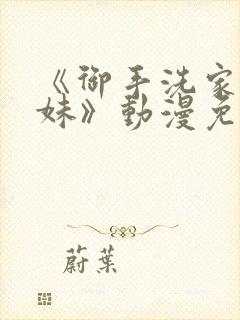 《御手洗家
妹》動漫免
蔚葉